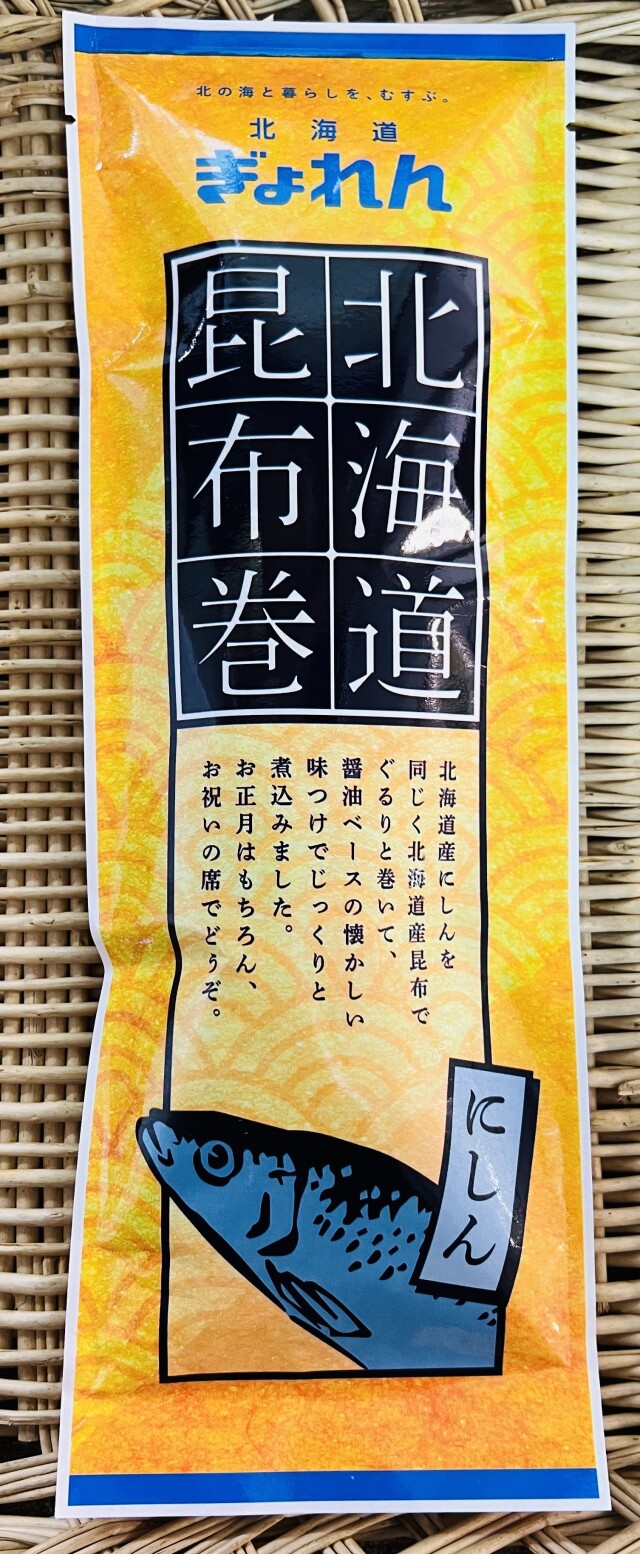 北の海と暮らしを、むすぶ。
北海道
ぎょれん
北海道
昆布巻
北海道産にしんを
同じく北海道産昆布で
ぐるりと巻いて、
醤油ベースの懐かしい
味つけでじっくりと
煮込みました。
お正月はもちろん、
お祝いの席でどうぞ。
にしん